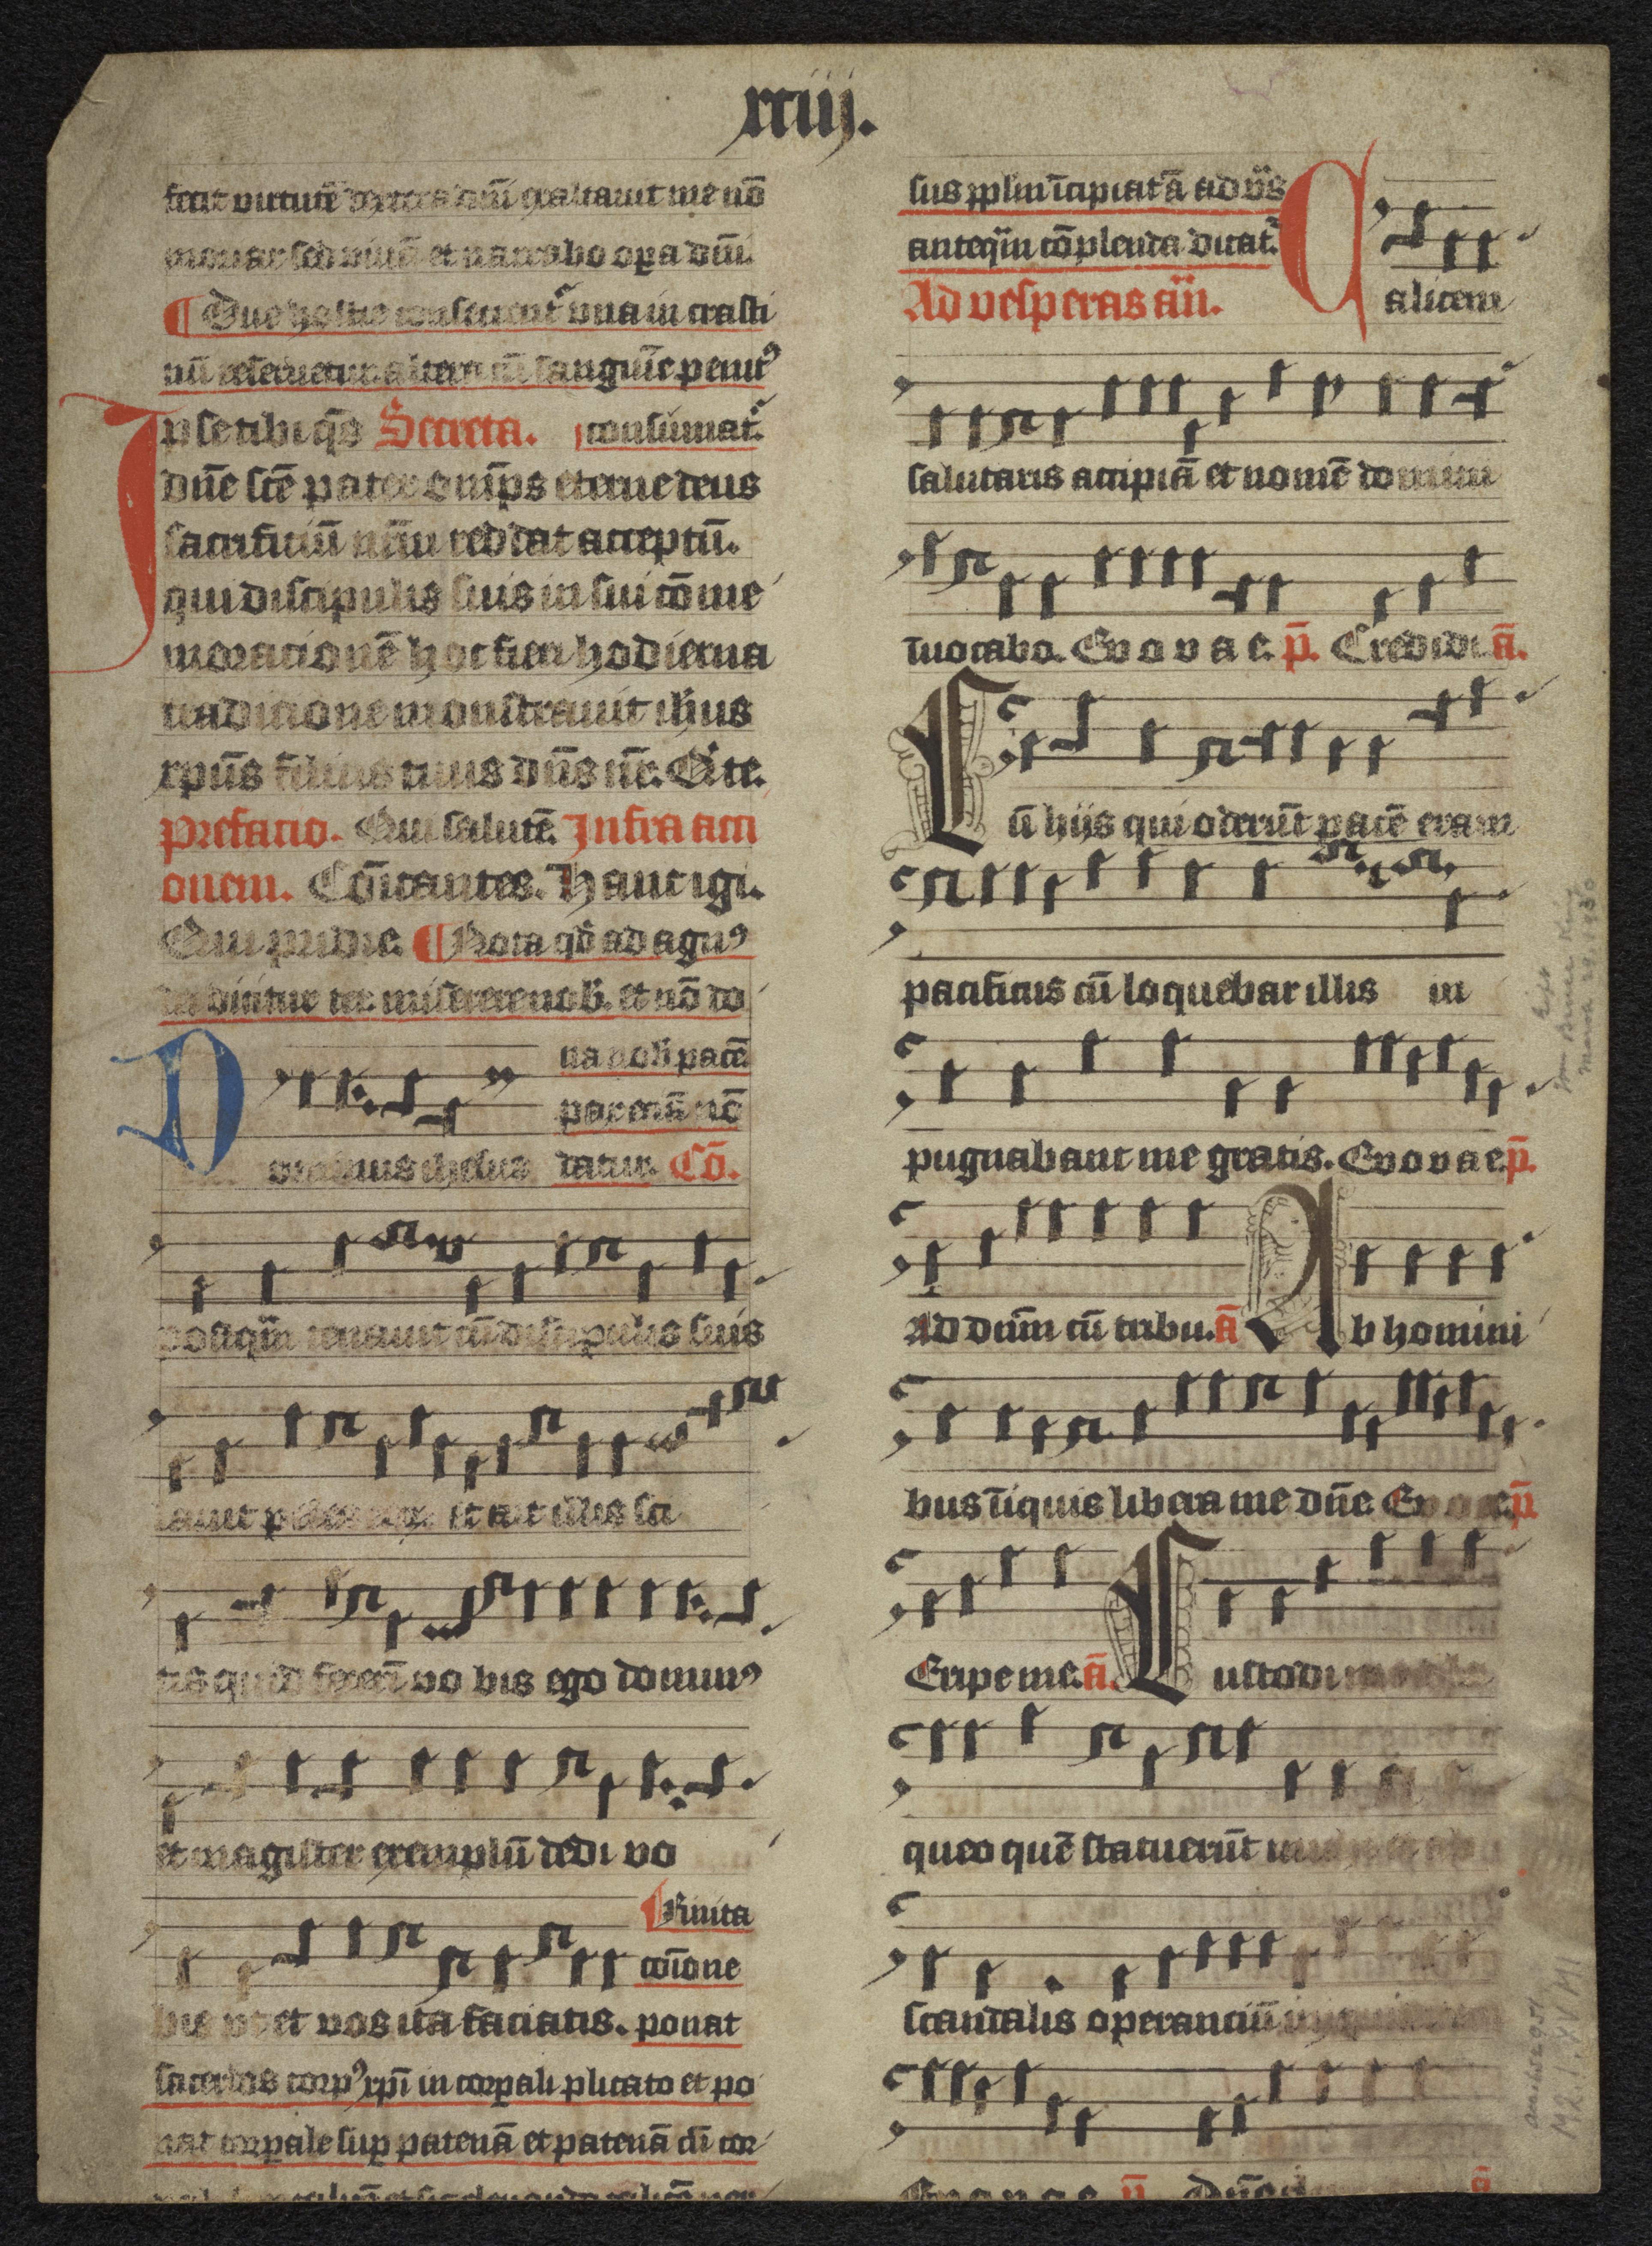 xciiij.
fecit virtutē dextera dn̄i exaltavit me nō
moriar sed vivā et narrabo oꝑa dn̄i.
¶ Due hostie consecrent᷑ vna in crasti
nū reservetur altera cū sanguīe penitꝰ
Ipse tibi q̄s Secreta. consūmat᷑.
dn̄e scē pater om̄ps eterne deus
sacrificiū nr̄m reddat acceptū.
qui discipulis suis in sui cōme
moracionē hoc fieri hodierna
tradicione monstravit ihūs
xp̄us filius tuus dn̄s nr̄. Q̇i te.
Prefacio. Qui salutē. Infra acti
onem. Cōicantes. Hanc igi.
Qui pridie. ¶ Nota qd̄ ad agnꝰ
dei dicitur ter. miserere nob̄. et nō do
na nob̄ pacē
pax eciā nō
Dominus ihesus datur. Cō.
postq̄m cenavit cū discipulis suis
lavit pedes eoꝝ et ait illis sci
tis quid fecerī vo bis ego dominꝰ
et magister exemplū dedi vo
Finita
cōione
bis vt et vos ita faciatis. ponat
sacerdos corpꝰ xp̄i in corꝑali plicato et po
nat corꝑale suꝑ patenā et patenā cū cor
sus ppl̄m īcipiat᷑ ā ad v̄s
anteq̄m cōplenda dicat᷑.
Ad vesperas an̄.
Calicem
salutaris accipiā et nomē domini
īuocabo. Evovae. p̄. Credidi ā.
Cū hijs qui oderūt pacē eram
pacificus cū loquebar illis in
pugnabant me gratis. Evovae. p̄.
Ad dn̄m cū tribu. ā Ab homini
bus īiquis libera me dn̄e. Evovae. p̄
Eripe me. ā. Custodi me
queo quē statuerūt
scandalis operanciū
Evovae. p̄ Dn̄e ā
Gift
Mrs Bruce King
March 29, 1930
M2.1.XVM1